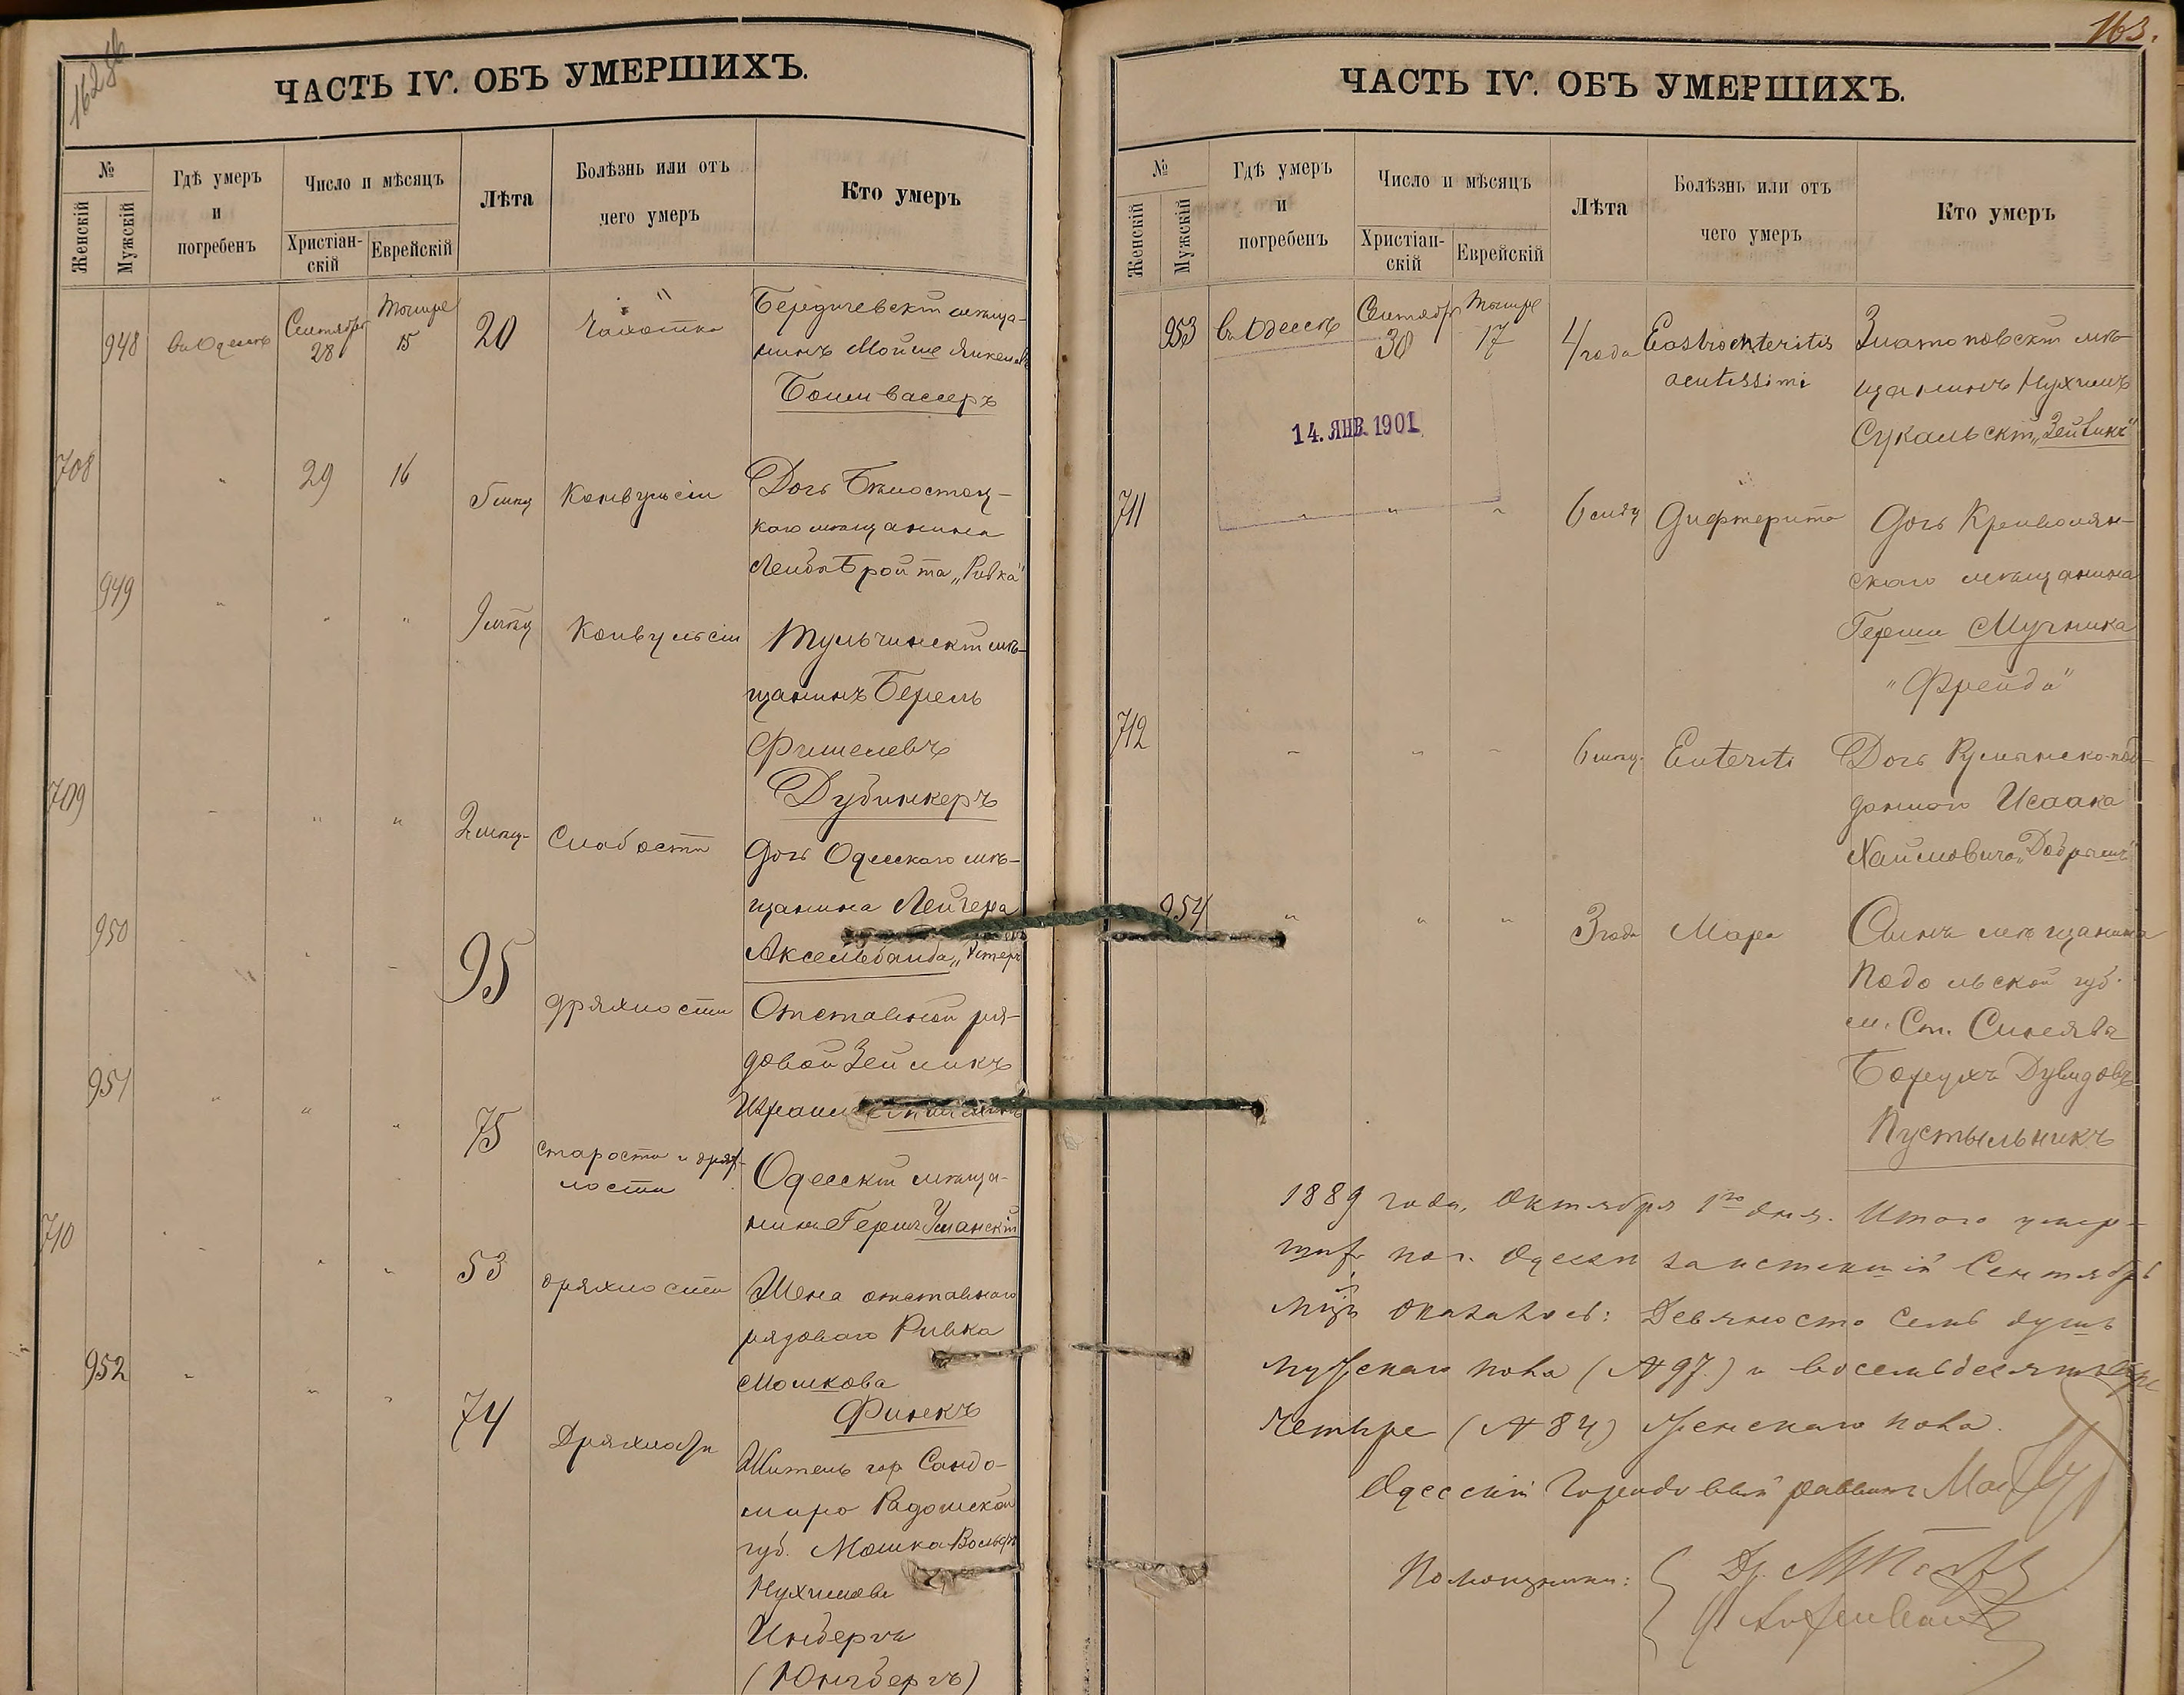 162 об
ЧАСТЬ IV. ОБЪ УМЕРШИХЪ.
№
Женскій
Мужскій
Гдѣ умеръ
и
погребенъ
Число и мѣсяцъ
Христіан-
скій
Еврейскій
Лѣта
Болѣзнь или отъ
чего умеръ
Кто умеръ
948 въ Одессѣ Сентября 28 Тишре 15 20 Чахотка
Бердичевскій мѣща-
нинъ Мойше Янкелев
Бомвассеръ
708 " 29 16 5 мѣсц Конвульсіи
Дочь Бѣлосток-
каго мѣщанина
Лейба Бройта „Ривка"
949 " " " 9 мѣсц Конвульсіи
Тульчинскій мѣ-
щанинъ Берель
Фишелевъ
Дубинкеръ
709 " " " 2 мѣсц. Слабости
Дочь Одесскаго мѣ-
щанина Лейзера
Аксельбанда „Эстеръ
950 " " " 95 дряхлости
Отставной ря-
довой Зейликъ
951 " " " 75 старости и дрях-
лости
Одесскій мѣща-
нинъ Гершъ Уманскій
710 " " " 53 дряхлости
Жена отставного
рядового Ривка
Мошкова
Финкъ
952 " " " 74 Дряхлости
Житель гор Сандо-
мира Радомской
губ. Мошка Вольфъ
Нухимовъ
Инбергъ
(Юнгбергъ)
163.
ЧАСТЬ IV. ОБЪ УМЕРШИХЪ.
№
Женскій
Мужскій
Гдѣ умеръ
и
погребенъ
Число и мѣсяцъ
Христіан-
скій
Еврейскій
Лѣта
Болѣзнь или отъ
чего умеръ
Кто умеръ
953 въ Одессѣ Сентября 30 Тишре 17 4 года Gastroenteritis
acutissimi
Златопольскій мѣ-
щанинъ Нухимъ
Сукальскій „Зейвикъ"
14. ЯНВ. 1901
711 " " " 6 мѣсц Дифтерита
Дочь Крейволян-
скаго мѣщанина
Герша Мучника
"Фрейда"
712 " " " 6 мѣсц. Enteriti
Дочь Румынско-под-
даннаго Исаака
Хаимовича „Добрышъ"
954 " " " 3 года Мара
Сынъ мѣщанина
Подольской губ.
м. Ст. Синява
Борухъ Дувидовъ
Пустыльникъ
1889 года, Октября 1го дня. Итого умер-
шихъ по г. Одессѣ за истекшій Сентябрь
мцъ оказалось: Девяносто семь душъ
мужскаго пола (№ 97.) и восемьдесятъ
четыре (№ 84) женскаго пола.
Одесскій Городовый раввинъ
Помощники: